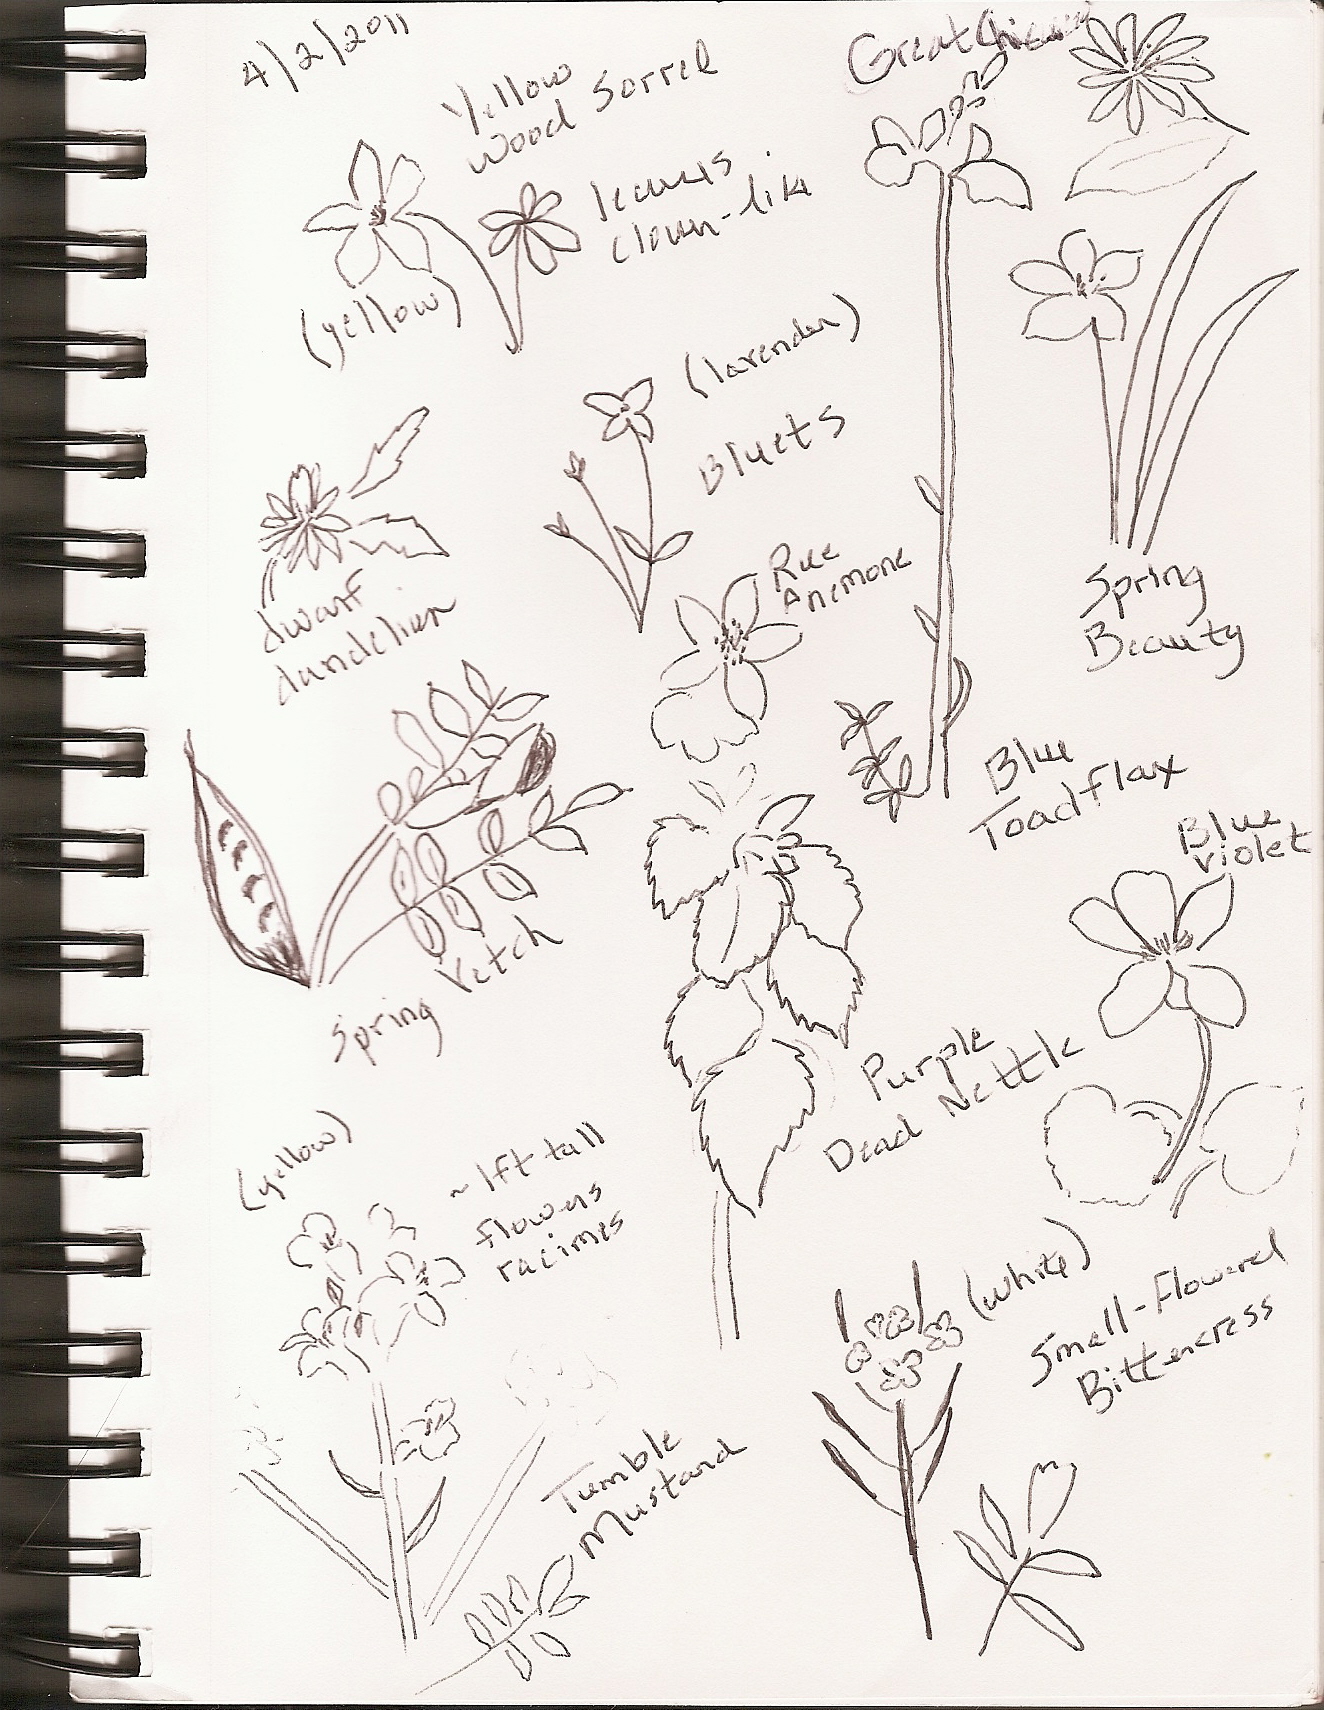 4/2/2011
Yellow
Wood Sorrel
leaves
clover-like
(yellow)
Great
(lavender)
Bluets
dwarf
dandelion
Rue
Anemone
Spring
Beauty
Blue
Toadflax
Blue
Violet
Spring Vetch
Purple
Dead Nettle
(yellow)
~1ft tall
flowers
racimes
(white)
Small-Flowered
Bittercress
Tumble
Mustard